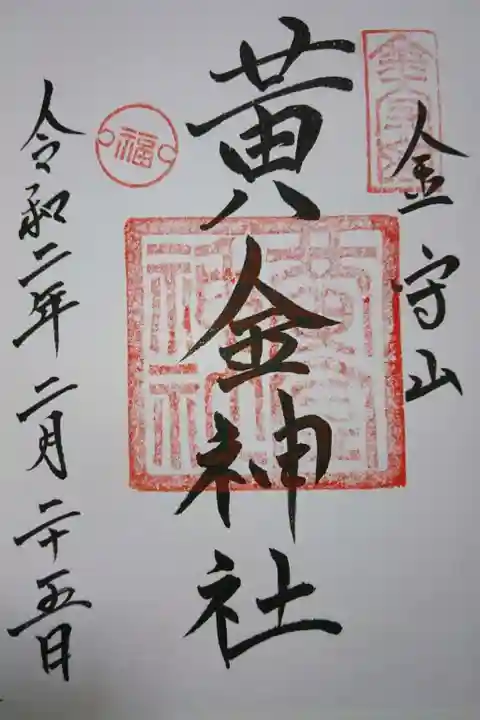 金守山
黄金神社
福
令和二年 二月 二十五日